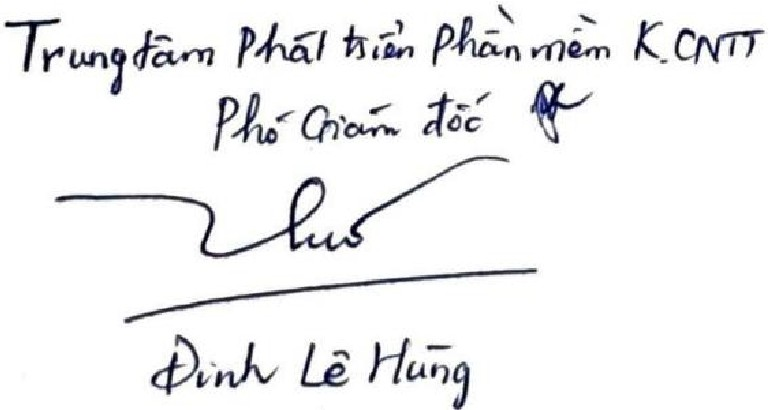 Trung tâm Phát triển Phần mềm K.CNTT
Phó Giám đốc
Đinh Lê Hùng